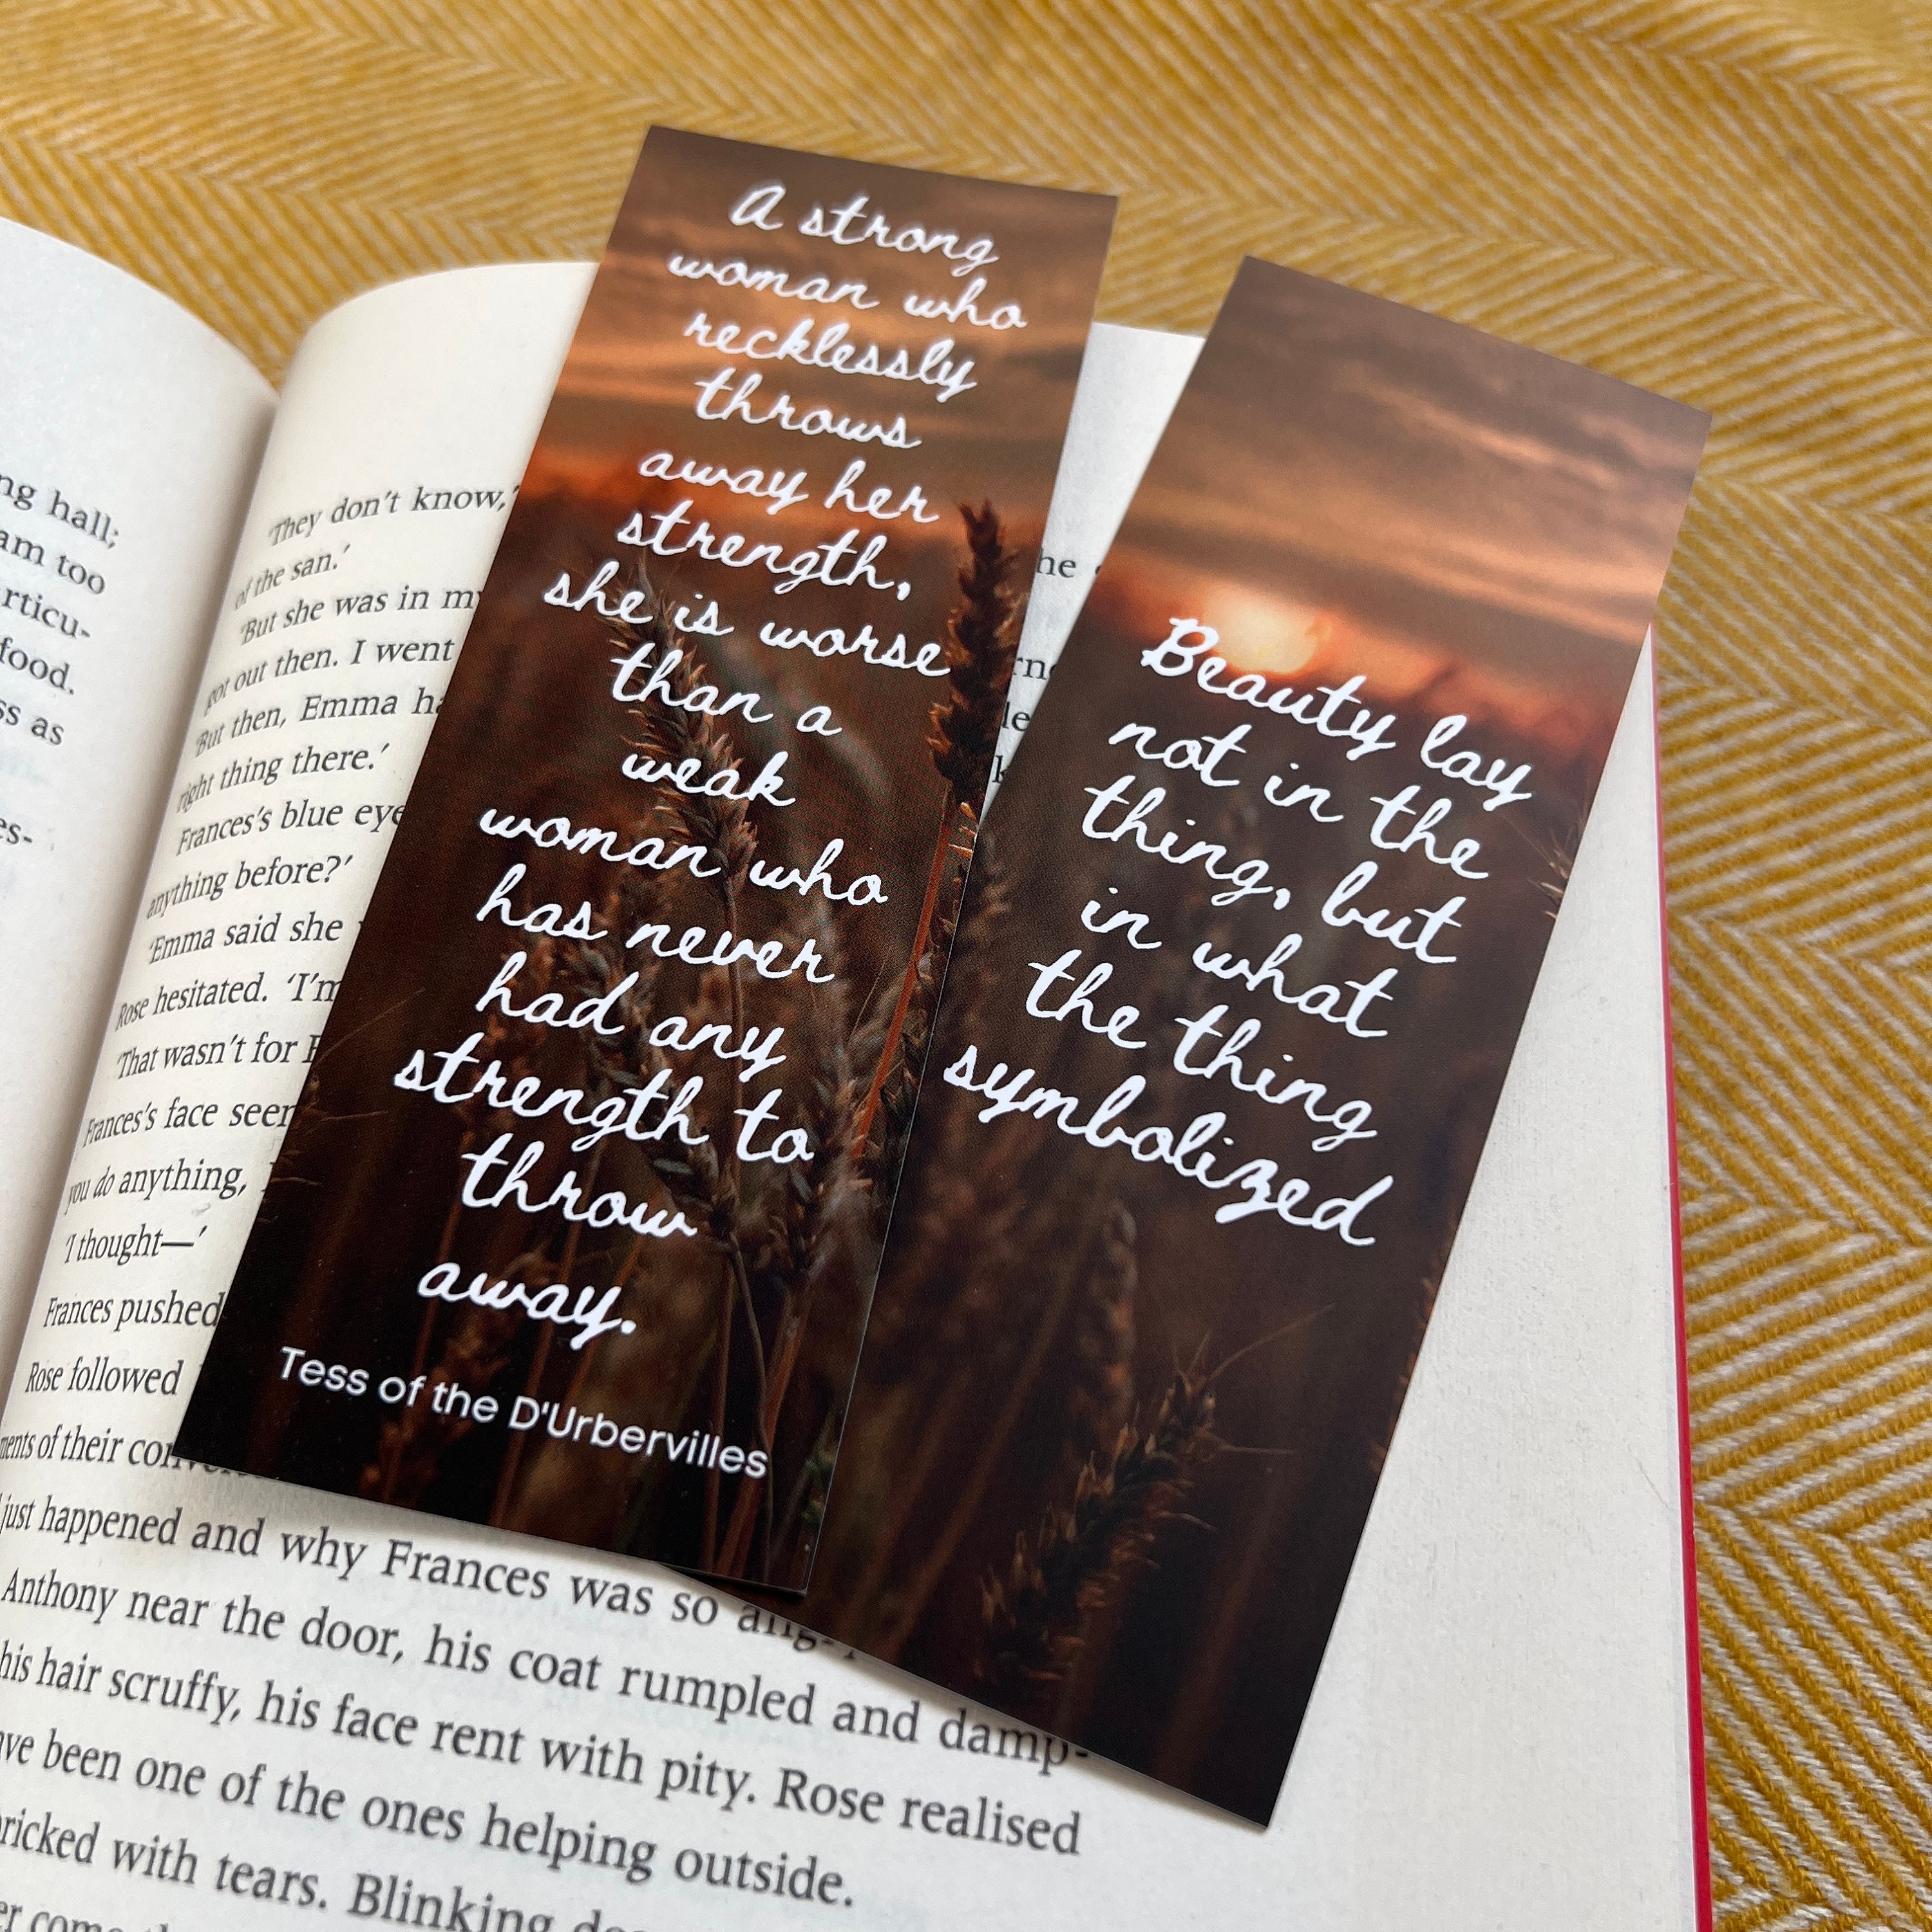 A strong
woman who
recklessly
throws
away her
strength,
she is worse
than a
weak
woman who
has never
had any
strength to
throw
away.
Tess of the D'Urbervilles
Beauty lay
not in the
thing, but
in what
the thing
symbolized
hall;
too
food.
as
'They don't know,'
of the san.'
'But she was in
got out then. I went
'But then, Emma
right thing there.'
Frances's blue
anything before?'
'Emma said she
Rose hesitated. 'I'm
'That wasn't for
Frances's face
you do anything,
'I thought—'
Frances pushed
Rose followed
of their
just happened and why Frances was so
Anthony near the door, his coat rumpled and damp-
his hair scruffy, his face rent with pity. Rose realised
been one of the ones helping outside.
with tears. Blinking